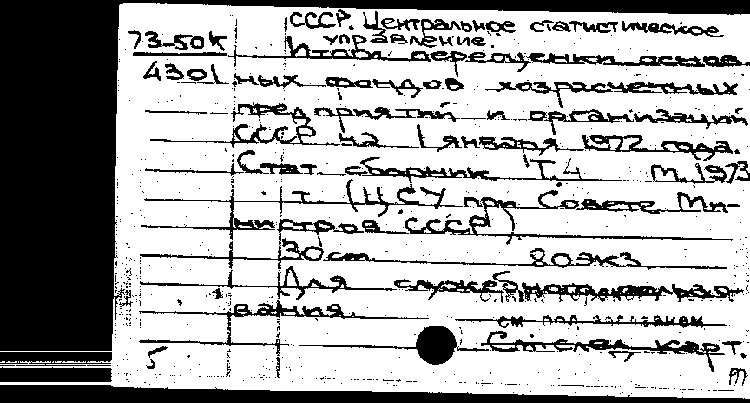 СССР. Центральное статистическое
управление.
73-50к
Итоги переоценки основ-
4301 ных фондов хозрасчетных
предприятий и организаций
СССР на 1 января 1972 года.
Стат. сборник Т.4 М. 1973
т. (ЦСУ при Совете Ми-
нистров СССР)
30 см 80 экз.
Для служебного пользо-
вания.
см под заглавием
См. след. карт.
5
т